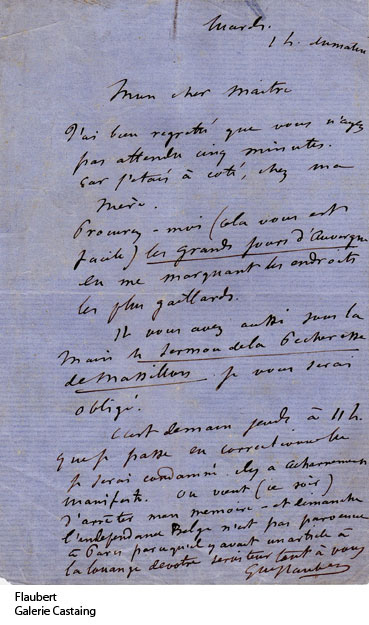 Mardi.
1 h. du matin
Mon cher maitre
J'ai bien regretté que vous n'ayez
pas attendu cinq minutes.
Car j'étais à coté, chez ma
mère.
Procurez-moi (cela vous est
facile) les grands jours d'Auvergne
en me marquant les endroits
les plus gaillards.
Si vous avez aussi sous la
main le sermon de la Pécheresse
de Massillon je vous serai
obligé.
C'est demain jeudi à 11 h.
que je passe en correctionnelle
je serai condamné. il y a acharnement
manifeste. On vient (ce soir)
d'arrêter mon mémoire - et dimanche
l'indépendance Belge n'est pas parvenue
à Paris parce qu'il y avait un article à
la louange de votre serviteur tout à vous
Gve Flaubert
Flaubert
Galerie Castaing